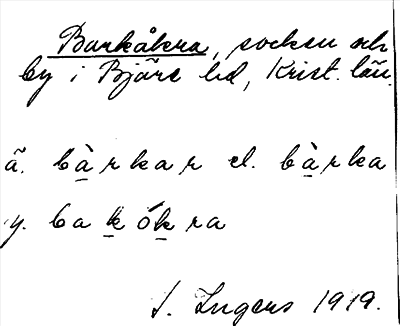 Barkåkra, socken och
by i Bjäre hd, Krist. län.
ä. bàrkar el. bàrka
y. ba k ók ra
I. Ingers 1919.